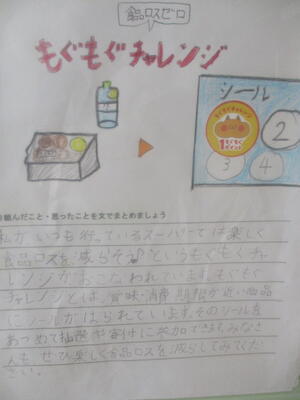 食品ロスゼロ
もぐもぐチャレンジ
シール
もぐもぐチャレンジ
1もぐもぐポイント
2
3
4
り組んだこと・思ったことを文でまとめましょう
私が いつも行っているスーパーでは楽しく
食品ロスを減らそう♪というもぐもぐチャ
レンジがおこなわれています。もぐもぐ
チャレンジとは、賞味・消費期限が近い商品
にシールがはられています。そのシールを
あつめて抽選や寄付に参加できます。みなさ
んも ぜひ楽しく食品ロスを減らしてみてくだ
さい。